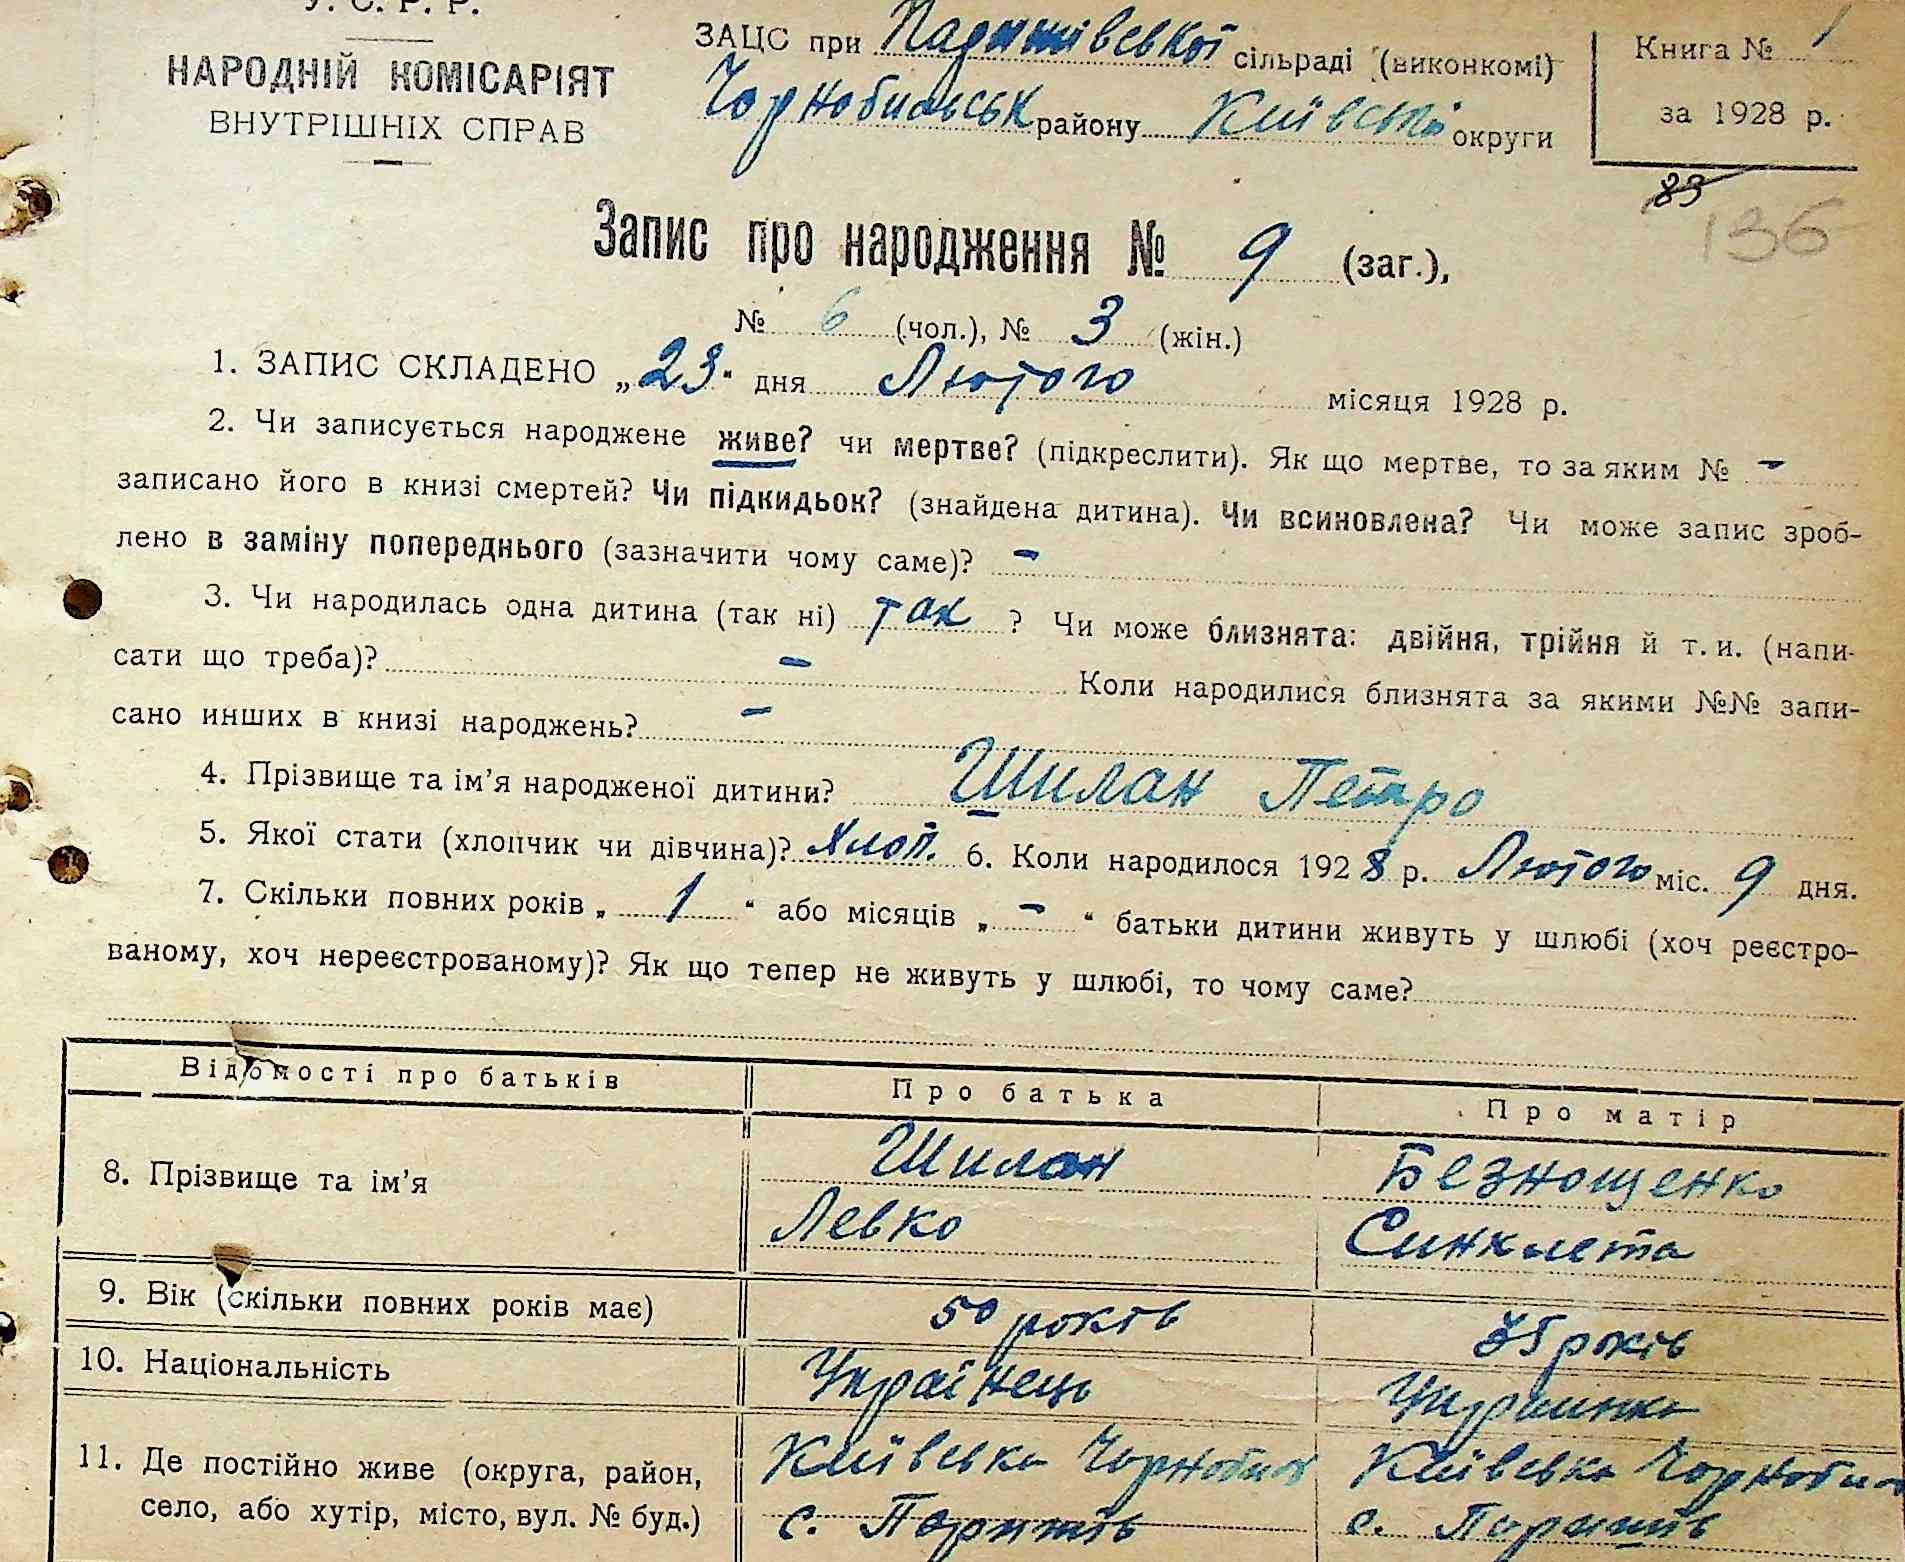 У. С. Р. Р.
НАРОДНІЙ КОМІСАРІЯТ
ВНУТРІШНІХ СПРАВ
ЗАЦС при сільраді (виконкомі)
Чорнобильськ району Київської округи
Книга № 1
за 1928 р.
83
136
Запис про народження № 9 (заг.),
№ 6 (чол.), № 3 (жін.)
1. ЗАПИС СКЛАДЕНО „23“ дня Лютого місяця 1928 р.
2. Чи записується народжене живе? чи мертве? (підкреслити). Як що мертве, то за яким № –
записано його в книзі смертей? Чи підкидьок? (знайдена дитина). Чи всиновлена? Чи може запис зроб-
лено в заміну попереднього (зазначити чому саме)? –
3. Чи народилась одна дитина (так ні) так ? Чи може близнята: двійня, трійня й т. и. (напи-
сати що треба)? – Коли народилися близнята за якими №№ запи-
сано инших в книзі народжень? –
4. Прізвище та ім’я народженої дитини? Шилан Петро
5. Якої стати (хлопчик чи дівчина)? Хлоп. 6. Коли народилося 1928 р. Лютого міс. 9 дня.
7. Скільки повних років „ 1 “ або місяців „ – “ батьки дитини живуть у шлюбі (хоч реєстро-
ваному, хоч нереєстрованому)? Як що тепер не живуть у шлюбі, то чому саме?
Відомості про батьків
Про батька
Про матір
8. Прізвище та ім’я
Шилан
Левко
Безнощенко
Синклета
9. Вік (скільки повних років має)
50 років
35 років
10. Національність
Українець
Украинка
11. Де постійно живе (округа, район,
село, або хутір, місто, вул. № буд.)
Київська Чорнобил
с.
Київська Чорнобил
с.